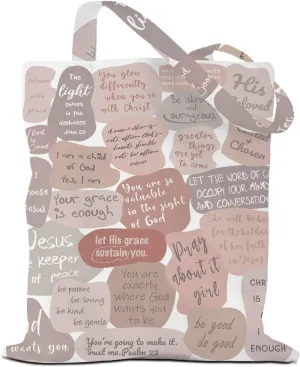 The
light
shines
in the
darkness
John 1:5
You glow
differently
when you're
with Christ
His
beloved
be strong
and
courageous
greater
things
are yet
to come
Chosen
I am a child
of God
Yes, I am
I
choose
Jesus
You are so
valuable
in the sight
of God
LET THE WORD OF
OCCUPY YOUR MIND
AND CONVERSATION
Your grace
is enough
She will be
of her faith
in Jesus
Jesus
keeper
of peace
let His grace
sustain you.
Pray
about it
girl
You are
exactly
where God
wants you
to be
be patient
be loving
be kind
be gentle
be good
do good
IS
ENOUGH
God
wants you
You're going to make it.
Trust me. Psalm 23